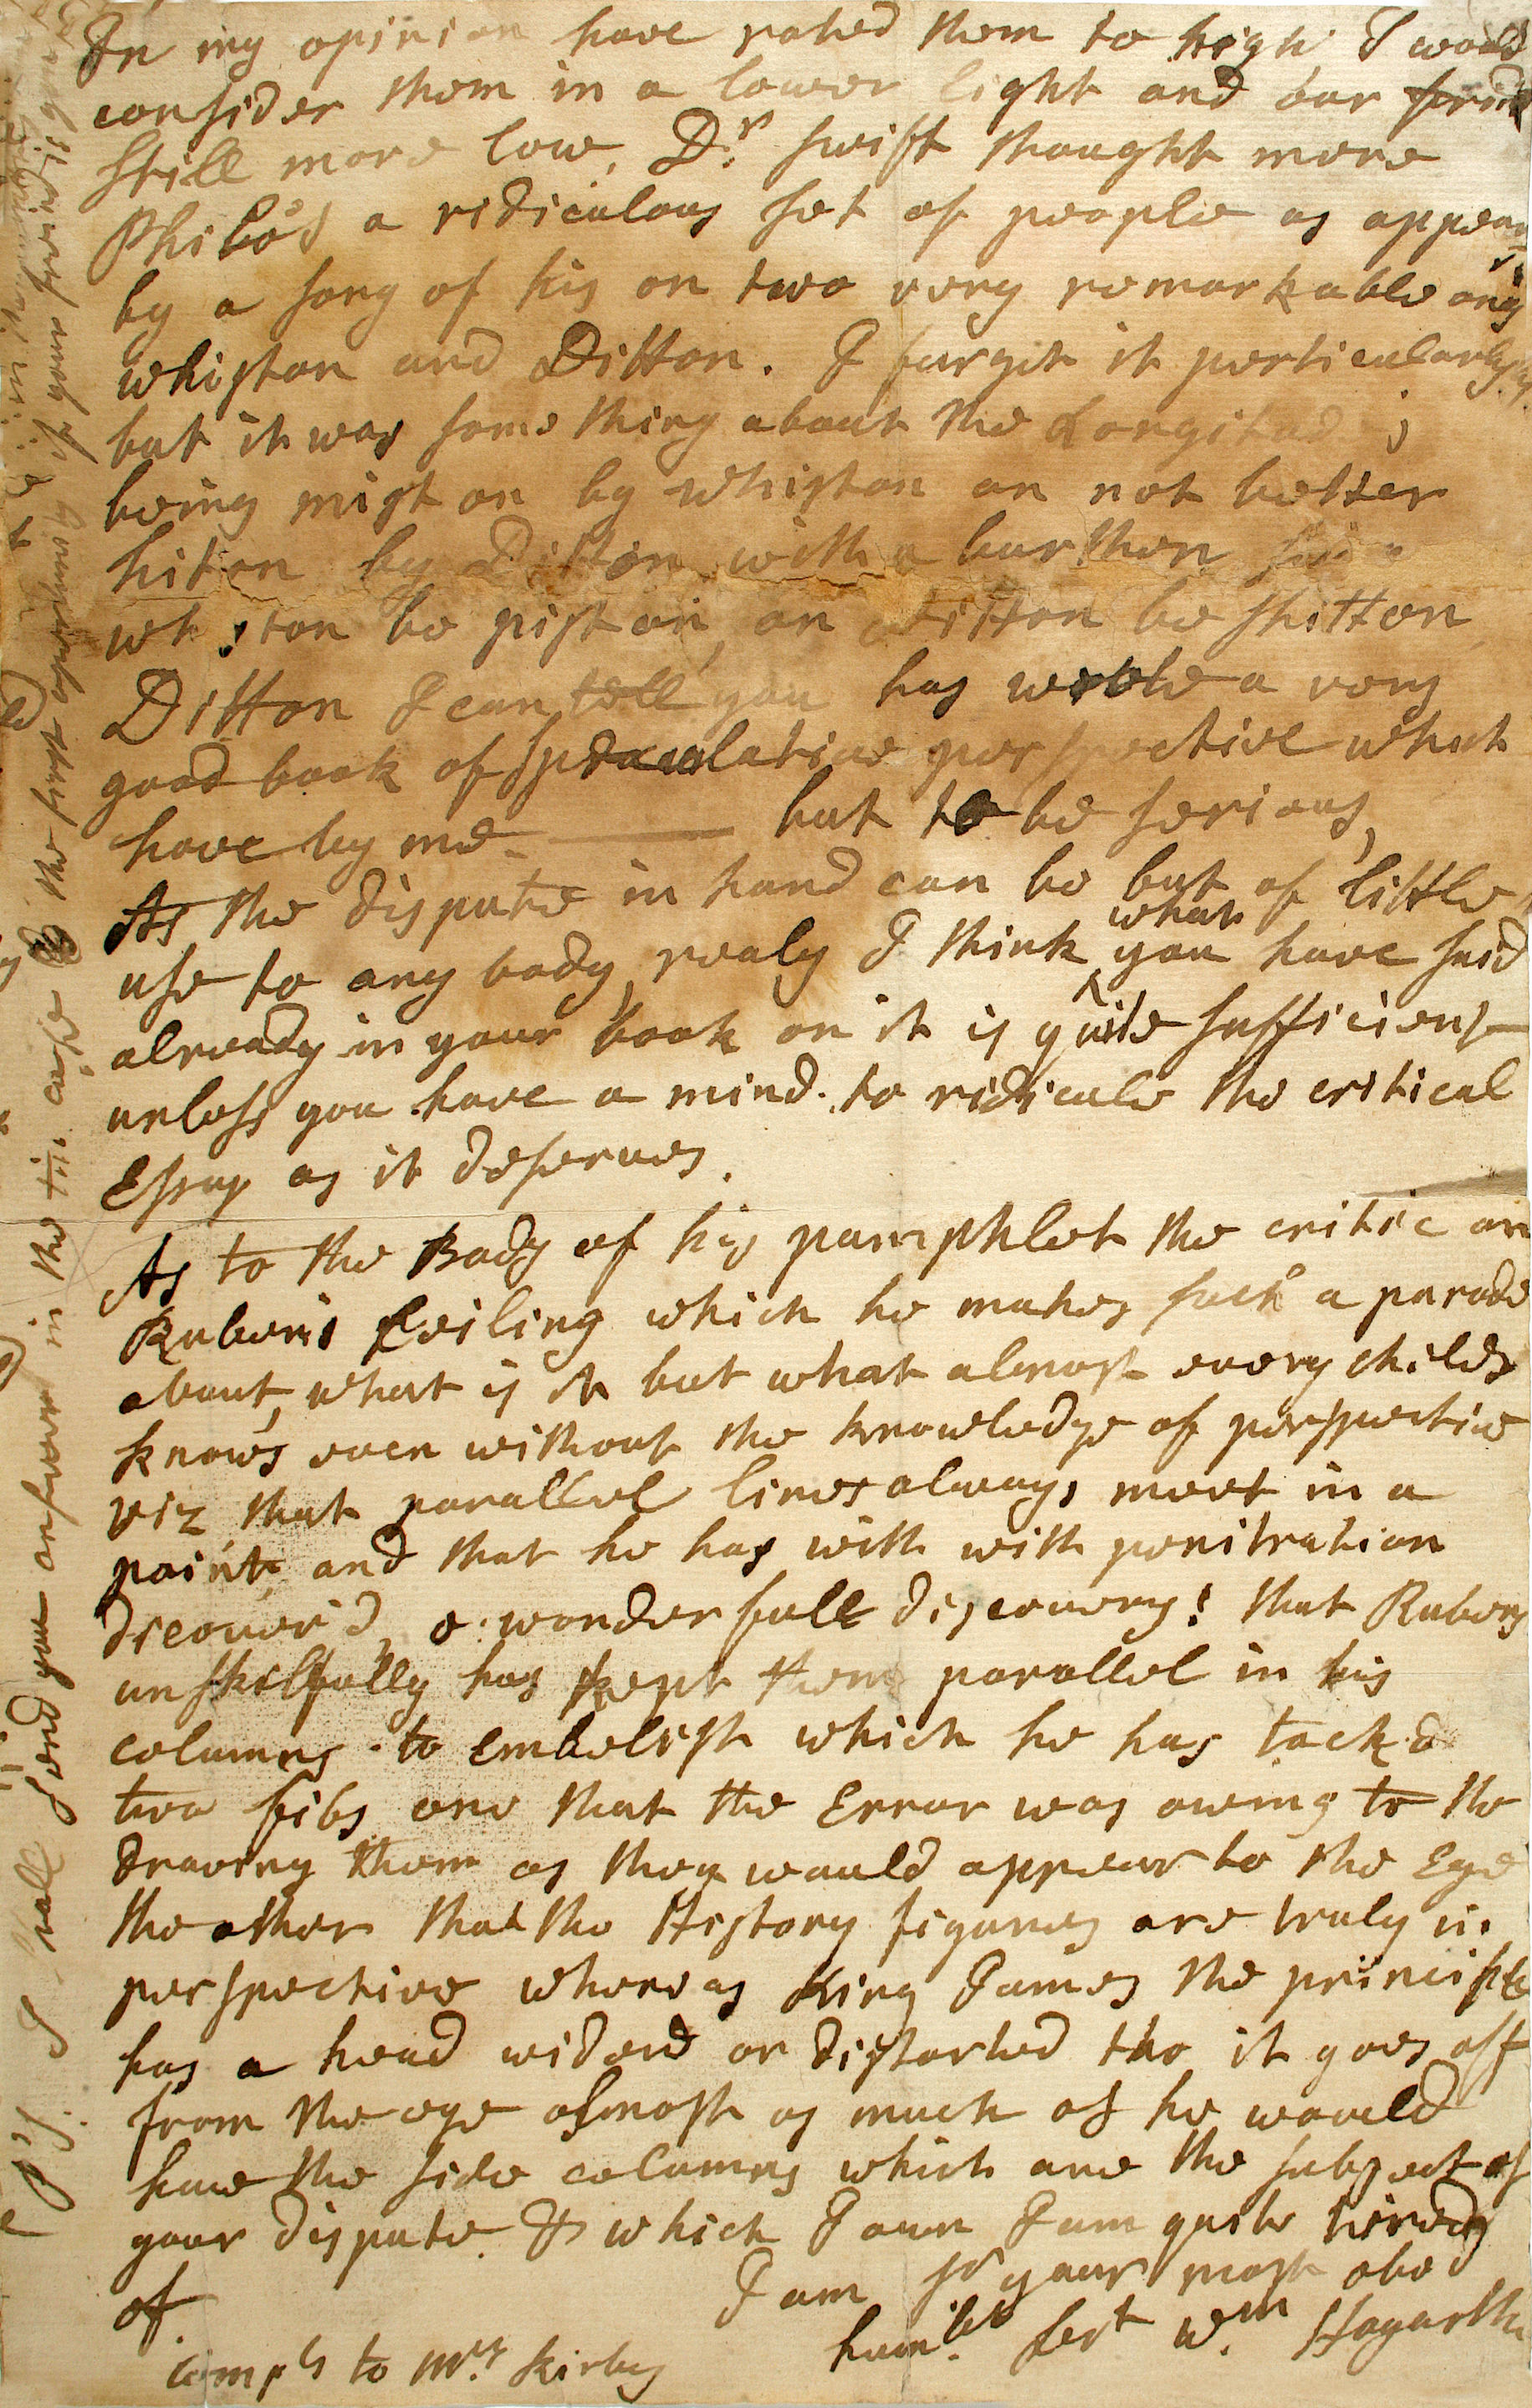 In my opinion have rated them to high I would
consider them in a lower light and our
still more low, Dr. Swift thought mere
Philo's a ridiculous set of people as appears
by a song of his on two very remarkable ones
Whiston and Ditton. I forgit it perticularly
but it was some thing about the Longitude
being mist on by Whiston an not better
hit on by Ditton with a burthen
Whiston be pist on, an Ditton be shitton
Ditton I can tell you has wrote a very
good book of speculative perspective which
have by me — but to be serious,
As the dispute in hand can be but of little
use to any body, realy I think what you have said
already in your book on it is quite sufficient
unless you have a mind to ridicule the critical
Essay as it deserves.
As to the Body of his pamphlet the critic on
Rubens Ceiling which he makes such a parade
about, what is it but what almost every childe
knows even without the knowledge of perspective
viz that parallel lines always meet in a
point, and that he has with with penitration
dicover'd, o wonderfull discovery! that Rubens
unskilfully has kept them parallel in his
columns to embelish which he has tack'd
two fibs one that the Error was owing to the
drawing them as they would appear to the Eye
the other that the History figures are truly in
perspective whereas King James the principle
has a head widend or distorted tho it goes off
from the eye almost as much as he would
have the side columns which are the subject of
your dispute & which I own I am quite tired
of
I am Sr your most obed
humble. sert Wm. Hogarth
Compls to Mrs. Kirby
P.S. I shall send you answer in the case the first opportunity if your freind is gone